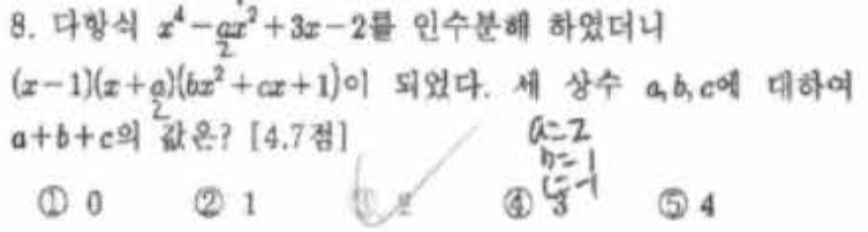 8. 다항식 x⁴-ax²+3x-2를 인수분해 하였더니
2
(x-1)(x+a)(bx²+cx+1)이 되었다. 세 상수 a, b, c에 대하여
2
a+b+c의 값은? [4.7점]
a=2
b=1
c=-1
① 0 ② 1 ③ 2 ④ 3 ⑤ 4